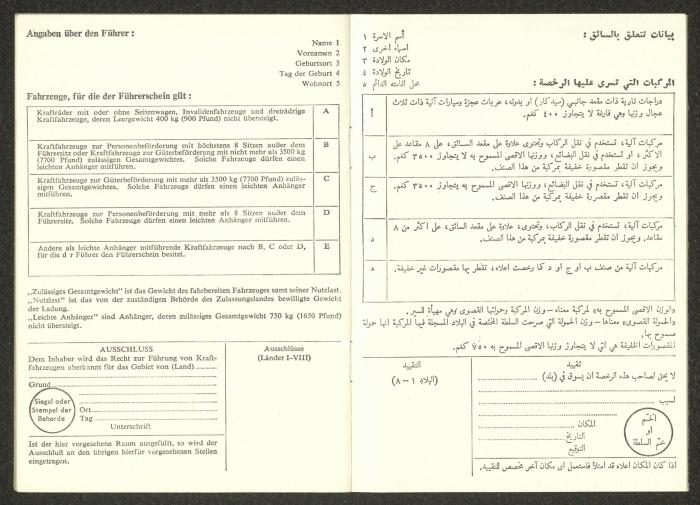 Angaben über den Führer :
Name 1
Vornamen 2
Geburtsort 3
Tag der Geburt 4
Wohnort 5
Fahrzeuge, für die der Führerschein gilt :
Krafträder mit oder ohne Seitenwagen, Invalidenfahrzeuge und dreirädrige
Kraftfahrzeuge, deren Leergewicht 400 kg (900 Pfund) nicht übersteigt.
A
Kraftfahrzeuge zur Personenbeförderung mit höchstens 8 Sitzen außer dem
Führersitz oder Kraftfahrzeuge zur Güterbeförderung mit nicht mehr als 3500 kg
(7700 Pfund) zulässigen Gesamtgewichtes. Solche Fahrzeuge dürfen einen
leichten Anhänger mitführen.
B
Kraftfahrzeuge zur Güterbeförderung mit mehr als 3500 kg (7700 Pfund) zuläs-
sigen Gesamtgewichtes. Solche Fahrzeuge dürfen einen leichten Anhänger
mitführen.
C
Kraftfahrzeuge zur Personenbeförderung mit mehr als 8 Sitzen außer dem
Führersitz. Solche Fahrzeuge dürfen einen leichten Anhänger mitführen.
D
Andere als leichte Anhänger mitführende Kraftfahrzeuge nach B, C oder D,
für die d r Führer den Führerschein besitzt.
E
„Zulässiges Gesamtgewicht" ist das Gewicht des fahrbereiten Fahrzeuges samt seiner Nutzlast.
„Nutzlast" ist das von der zuständigen Behörde des Zulassungslandes bewilligte Gewicht
der Ladung.
„Leichte Anhänger" sind Anhänger, deren zulässiges Gesamtgewicht 750 kg (1650 Pfund)
nicht übersteigt.
AUSSCHLUSS
Dem Inhaber wird das Recht zur Führung von Kraft-
fahrzeugen aberkannt für das Gebiet von (Land)
Grund
Siegel oder
Stempel der
Behorde
Ort
Tag
Unterschrift
Ist der hier vorgesehene Raum ausgefüllt, so wird der
Ausschluß an den übrigen hierfür vorgesehenen Stellen
eingetragen.
Ausschlüsse
(Länder I–VIII)
بيانات تتعلق بالسائق :
أسم الاسرة ١
اسماء اخرى ٢
مكان الولادة ٣
تاريخ الولادة ٤
محل اقامته الدائم ٥
المركبات التي تسرى عليها الرخصة :
دراجات نارية ذات مقعد جانبي (سيدكار) او بدونه، عربات عجزة وسيارات آلية ذات ثلاث
عجال وزنها وهي فارغة لا يتجاوز ٤٠٠ كغم.
أ
مركبات آلية، تستخدم في نقل الركاب وتحتوى علاوة على مقعد السائق، على ٨ مقاعد على
الاكثر، او تستخدم في نقل البضائع، ووزنها الاقصى المسموح به لا يتجاوز ٣٥٠٠ كغم.
ويجوز ان تقطر مقصورة خفيفة بمركبة من هذا الصنف.
ب
مركبات آلية، تستخدم في نقل البضائع، ووزنها الاقصى المسموح به يتجاوز ٣٥٠٠ كغم.
ويجوز ان تقطر مقصورة خفيفة بمركبة من هذا الصنف.
ج
مركبات آلية، تستخدم في نقل الركاب، وتحتوى، علاوة على مقعد السائق، على اكثر من ٨
مقاعد. ويجوز ان تقطر مقصورة خفيفة بمركبة من هذا الصنف.
د
مركبات آلية من صنف ب او ج او د كما رخصت اعلاه، تقطر بها مقصورات غير خفيفة.
ه
«الوزن الاقصى المسموح به» لمركبة معناه – وزن المركبة وحمولتها القصوى وهي مهيأة للسير.
«الحمولة القصوى» معناها – وزن الحمولة التي صرحت السلطة المختصة في البلاد المسجلة فيها المركبة انها حمولة
مسموح بها.
المقصورات الخفيفة هي التي لا يتجاوز وزنها الاقصى المسموح به ٧٥٠ كغم.
تقييد
لا يحق لصاحب هذه الرخصة ان يسوق في (بلد)
لسبب
الختم
او
ختم السلطة
المكان
التاريخ
التوقيع
اذا كان المكان اعلاه قد امتلأ فاستعمل اى مكان آخر مخصص للتقييد.
التقييد
(البلاد ١ – ٨)